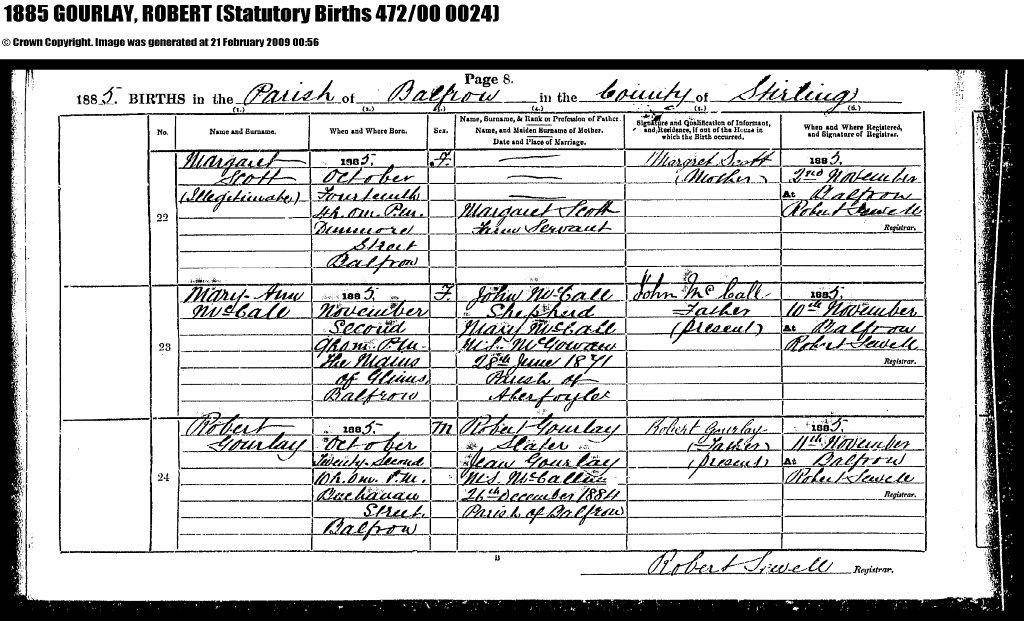 1885 GOURLAY, ROBERT (Statutory Births 472/00 0024)
© Crown Copyright. Image was generated at 21 February 2009 00:56
Page 8.
1885. BIRTHS in the Parish of Balfron in the County of Stirling
(1.) (2.) (3.) (4.) (5.) (6.)
No.
Name and Surname.
When and Where Born.
Sex.
Name, Surname, & Rank or Profession of Father.
Name, and Maiden Surname of Mother.
Date and Place of Marriage.
Signature and Qualification of Informant,
and Residence, if out of the House in
which the Birth occurred.
When and Where Registered,
and Signature of Registrar.
22
Margaret
Scott
(Illegitimate)
1885.
October
Fourteenth
4h. 0m. P.M.
Dunmore
Street
Balfron
F.
Margaret Scott
Farm Servant
Margret Scott
(Mother)
1885.
2nd November
At Balfron
Robert Sewell
Registrar.
23
Mary-Ann
McCall
1885.
November
Second
9h. 0m. P.M.
The Mains
of Glinns,
Balfron
F.
John McCall
Shepherd
Mary McCall
M.S. McGowan
28th June 1871
Parish of
Aberfoyle
John McCall
Father
(present)
1885.
10th November
At Balfron
Robert Sewell
Registrar.
24
Robert
Gourlay
1885.
October
Twenty-Second
10h. 0m. P.M.
Buchanan
Street
Balfron
M
Robert Gourlay
Slater
Jean Gourlay
M.S. McCallum
26th December 1884
Parish of Balfron
Robert Gourlay
(Father)
(present)
1885.
11th November
At Balfron
Robert Sewell
Registrar.
B
Robert Sewell Registrar.